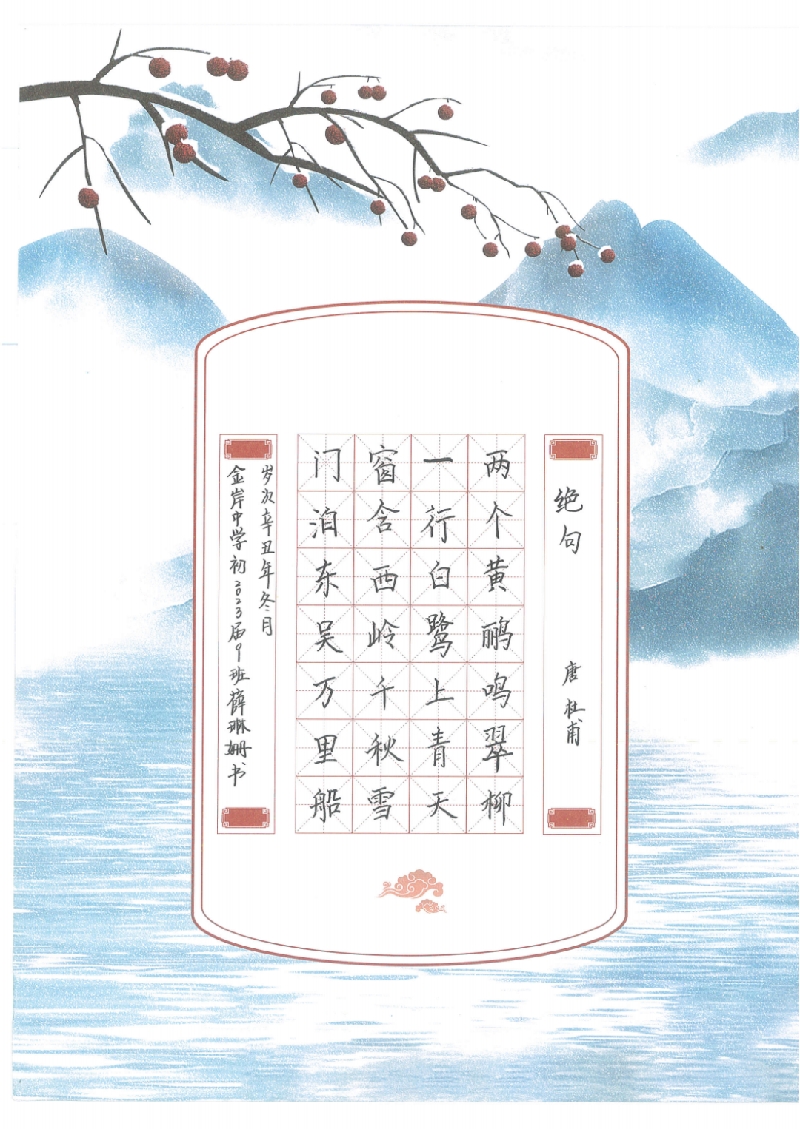 绝句
唐 杜甫
两个黄鹂鸣翠柳
一行白鹭上青天
窗含西岭千秋雪
门泊东吴万里船
岁次辛丑年冬月
金岸中学初2023届9班薛琳姗书